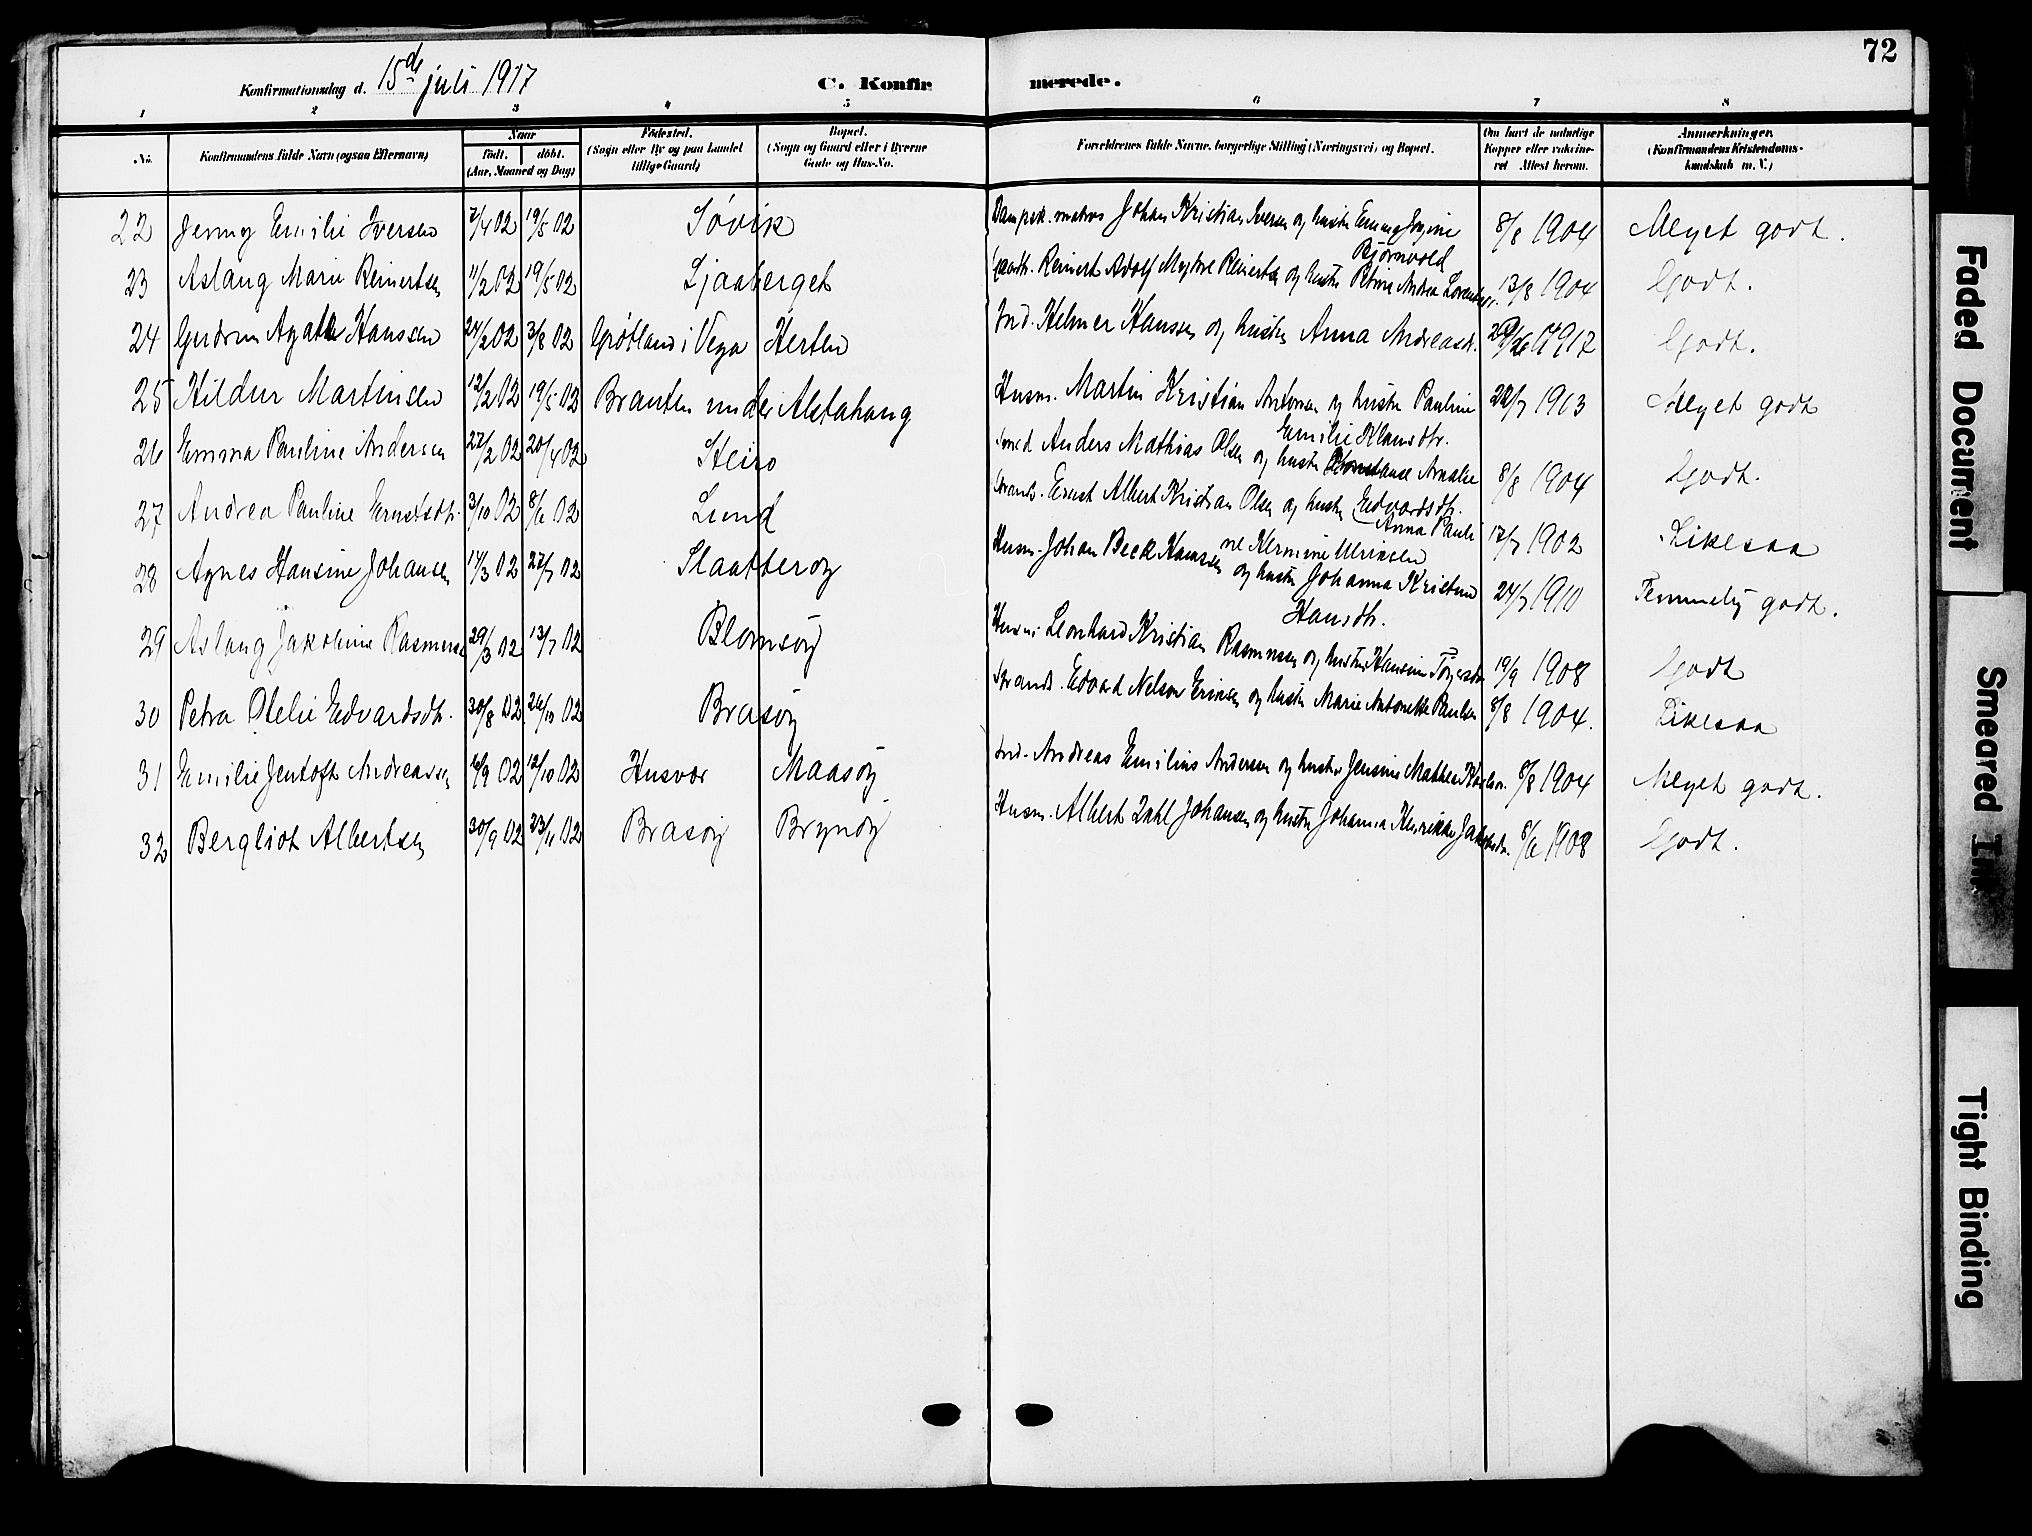 72
Konfirmationsdag d. 15de juli 1917 C. Konfir merede.
1 2 3 4 5 6 7 8
No. Konfirmandens fulde Navn (ogsaa Efternavn) Naar født. døbt. (Aar, Maaned og Dag) Fødested. (Sogn eller By og paa Landet tillige Gaard) Bopæl. (Sogn og Gaard eller i Byerne Gade og Hus-No. Forældrenes fulde Navne, borgerlige Stilling (Næringsvei) og Bopæl. Om havt de naturlige Kopper eller vakcineret Attest herom. Anmærkninger. (Konfirmandens Kristendomskundskab m. V.)
22 Jenny Emilie Iversen 7/4 02 19/5 02 Søvik Dampsk. matros Johan Kristian Iversen og hustr Emma Jørgine 8/8 1904 Meget godt.
Bjørnvold
23 Aslaug Marie Reinertsen 11/2 02 19/5 02 Ljaaberget Reinert Adolf Myhre Reinertsen og hustr Petrine Andrea Lorentsd. 13/8 1904 Godt.
24 Gudrun Agathe Hanssen 24/2 02 3/8 02 Grøtland i Vega Herten Ind. Helmer Hanssen og hustr Anna Andreasd. 1917 Godt.
25 Hildur Martinsen 12/2 02 19/5 02 Brauten under Alstahaug Husm. Martin Kristian Antonsen og hustr Pauline 22/7 1903 Meget godt
Emilie Klausdtr.
26 Emma Pauline Andersen 27/2 02 20/4 02 Steiro Smed Anders Mathias Olsen og hustr Konstanse Amalie 8/8 1904 Godt.
Edvardsdtr.
27 Andrea Pauline Ernstsdtr. 3/10 02 8/6 02 Lund Strands. Ernst Albert Kristian Olsen og hustr Anna Pauli 17/7 1902 Likesaa
ne Hermine Ulriksen
28 Agnes Hansine Johansen 14/3 02 27/7 02 Slaatterøy Husm. Johan Beck Hanssen og hustr Johanna Kristine 24/7 1910 Temmelig godt.
Hansdtr.
29 Aslaug Jakobine Rasmussen 29/3 02 13/7 02 Blomsøy Husm Leonhard Kristian Rasmussen og hustr Hansine Torgersdtr 19/9 1908 Godt
30 Petra Otelie Edvardsdtr. 30/8 02 26/10 02 Brasøy Strands. Edvard Nelson Eriksen og hustr Marie Antonette Paulsen 8/8 1904. Likesaa
31 Emilie Jentoft Andreassen 6/9 02 12/10 02 Husvær Maasøy Ind. Andreas Emilius Andersen og hustr Jensine Mathea Karlsen. 8/8 1904 Meget godt.
32 Bergliot Albertsen 30/9 02 23/11 02 Brasøy Brynøy Husm. Albert Zahl Johansen og hustr Johanna Henrikke Jakobsdtr. 8/6 1908 Godt.
Faded Document
Smeared Ink
Tight Binding